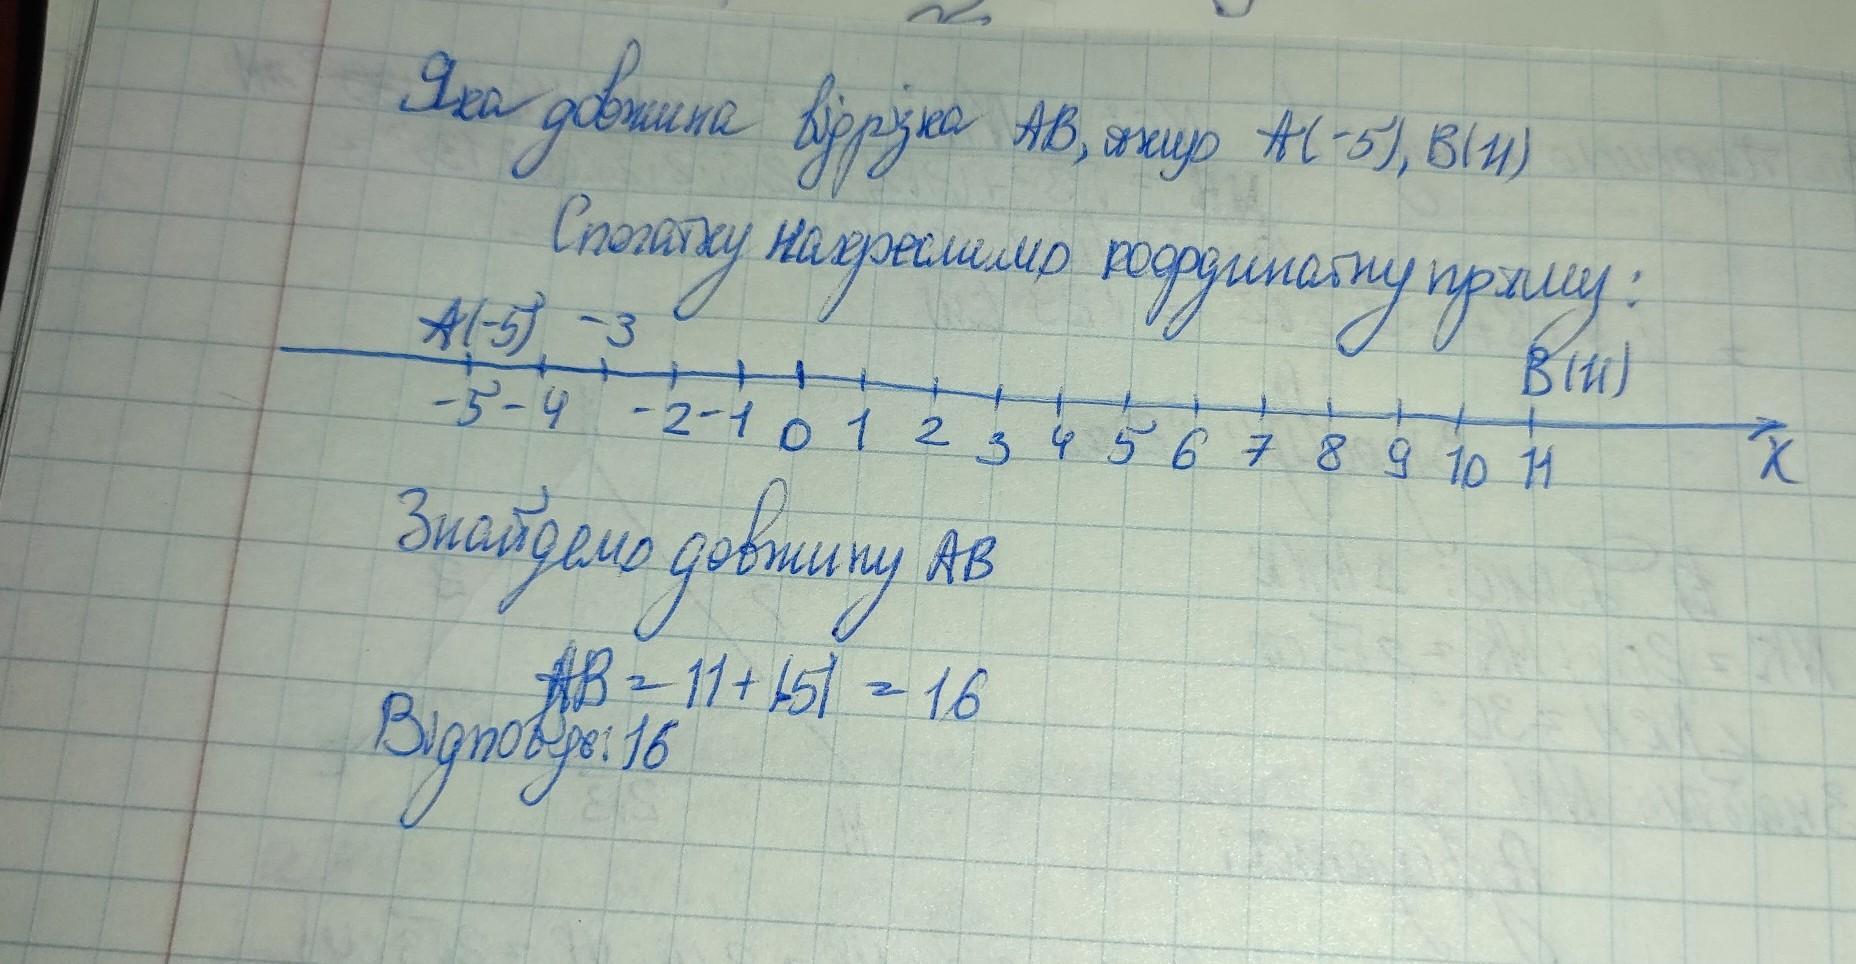 Яка довжина відрізка AB, якщо A(-5), B(11)
Спочатку накреслимо координатну пряму:
A(-5) -3 B(11)
-5 -4 -2 -1 0 1 2 3 4 5 6 7 8 9 10 11 x
Знайдемо довжину AB
AB = 11 + |-5| = 16
Відповідь: 16